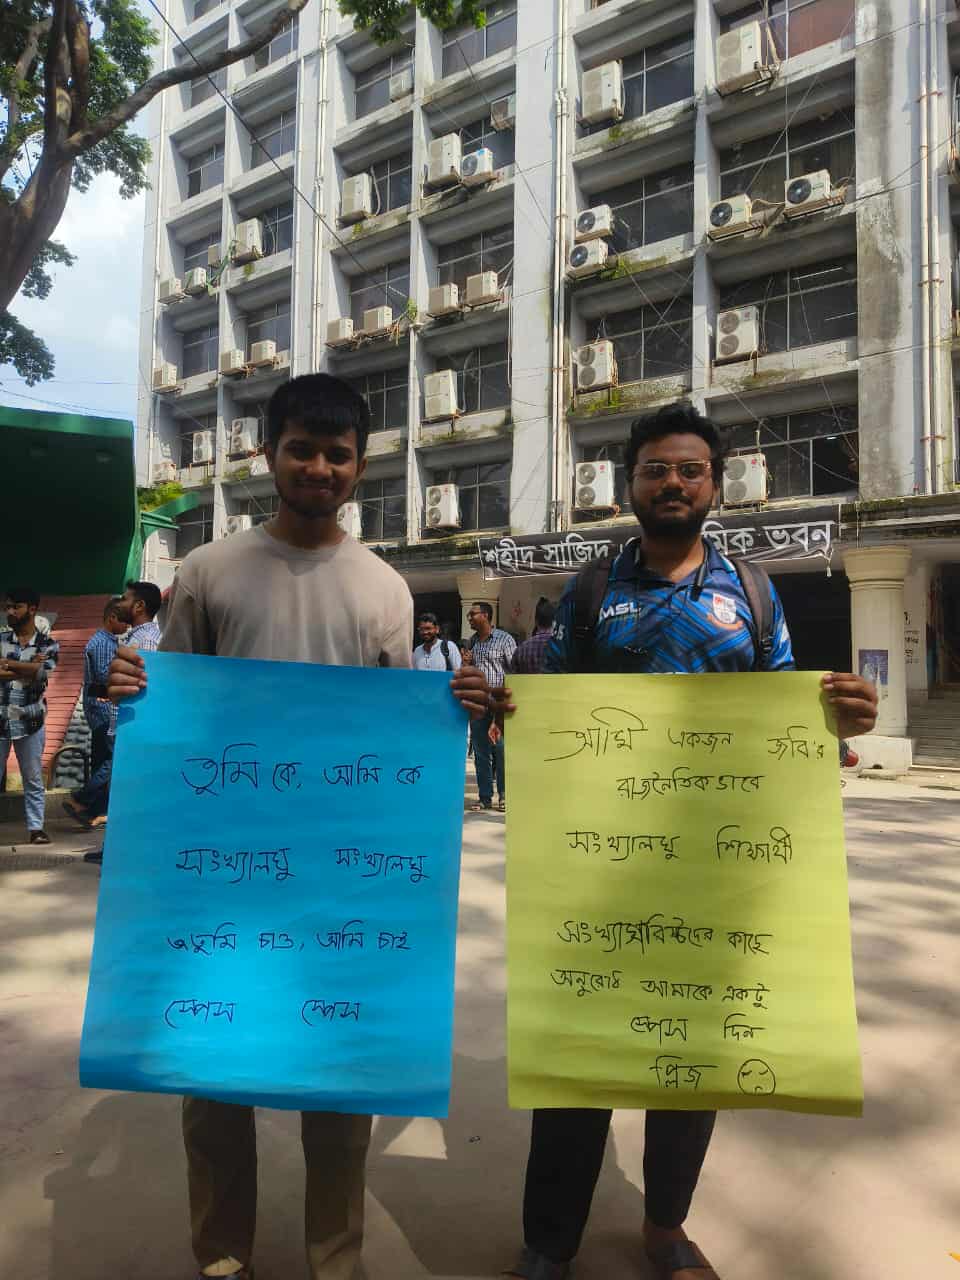 শহীদ সাজিদ মিক ভবন
MSL
তুমি কে, আমি কে
সংখ্যালঘু সংখ্যালঘু
তুমি চাও, আমি চাই
স্পেস স্পেস
আমি একজন জবি'র
রাজনৈতিকভাবে
সংখ্যালঘু শিক্ষার্থী
সংখ্যাগরিষ্ঠদের কাছে
অনুরোধ আমাকে একটু
স্পেস দিন
প্লিজ